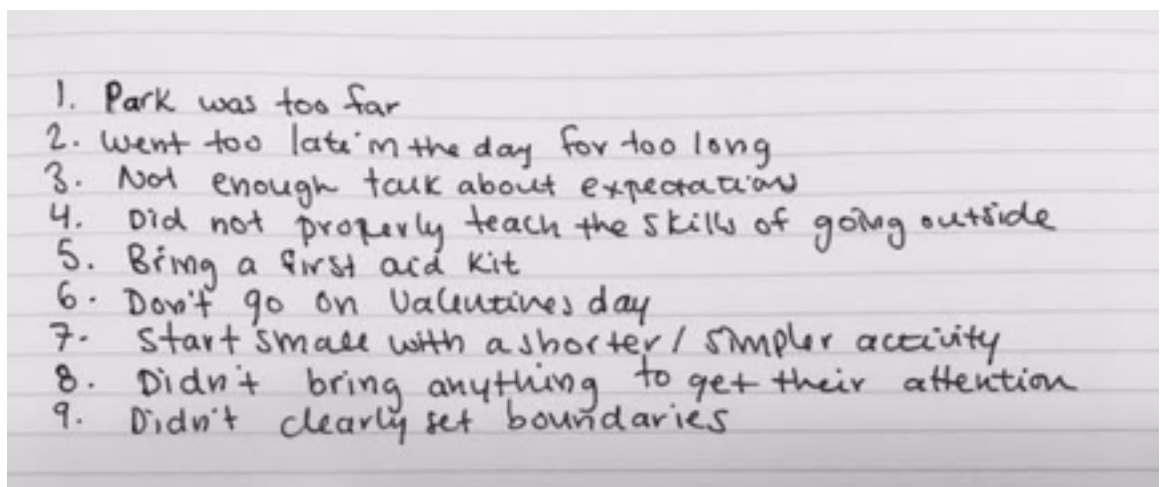 1. Park was too far
2. Went too late in the day for too long
3. Not enough talk about expectations
4. Did not properly teach the skills of going outside
5. Bring a first aid kit
6. Don't go on Valentines day
7. Start small with a shorter / simpler activity
8. Didn't bring anything to get their attention
9. Didn't clearly set boundaries